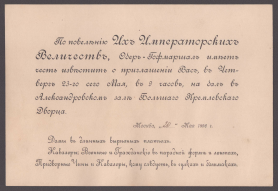 По повелѣнію Ихъ Императорскихъ
Величествъ, Оберъ-Гофмаршалъ имѣетъ
честь извѣстить о приглашеніи Васъ, въ Чет-
вергъ 23-го сего Мая, въ 9 часовъ, на балъ въ
Александровскомъ залѣ Большаго Кремлевскаго
Дворца.
Москва, Мая 1896 г.
Дамы въ длинныхъ вырѣзныхъ платьяхъ.
Кавалеры: Военные и Гражданскіе въ парадной формѣ и лентахъ,
Придворные Чины и Кавалеры, кому слѣдуетъ, въ чулкахъ и башмакахъ.